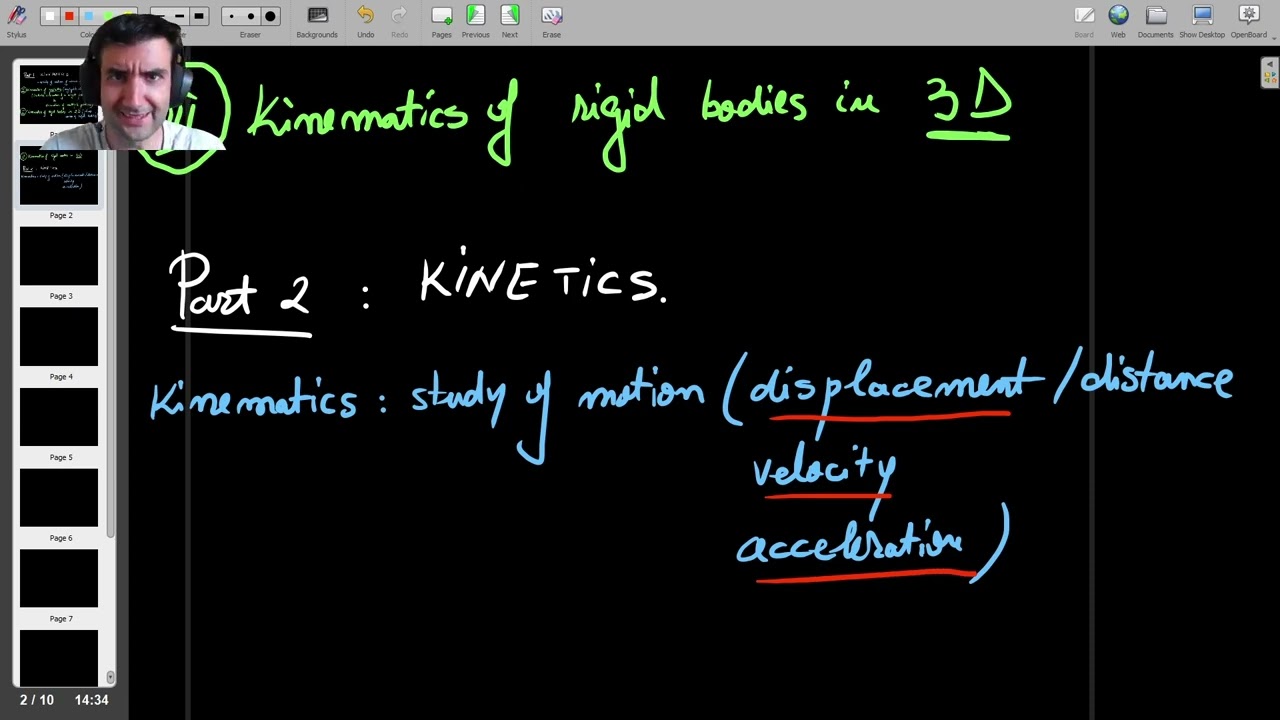 Stylus
Eraser
Backgrounds
Undo
Redo
Pages
Previous
Next
Erase
Board
Web
Documents
Show Desktop
OpenBoard
Kinematics of rigid bodies in 3D
Part 2 : KiNETiCS.
Kinematics : study of motion (displacement/distance
velocity
acceleration)
Page 2
Page 3
Page 4
Page 5
Page 6
Page 7
2 / 10
14:34